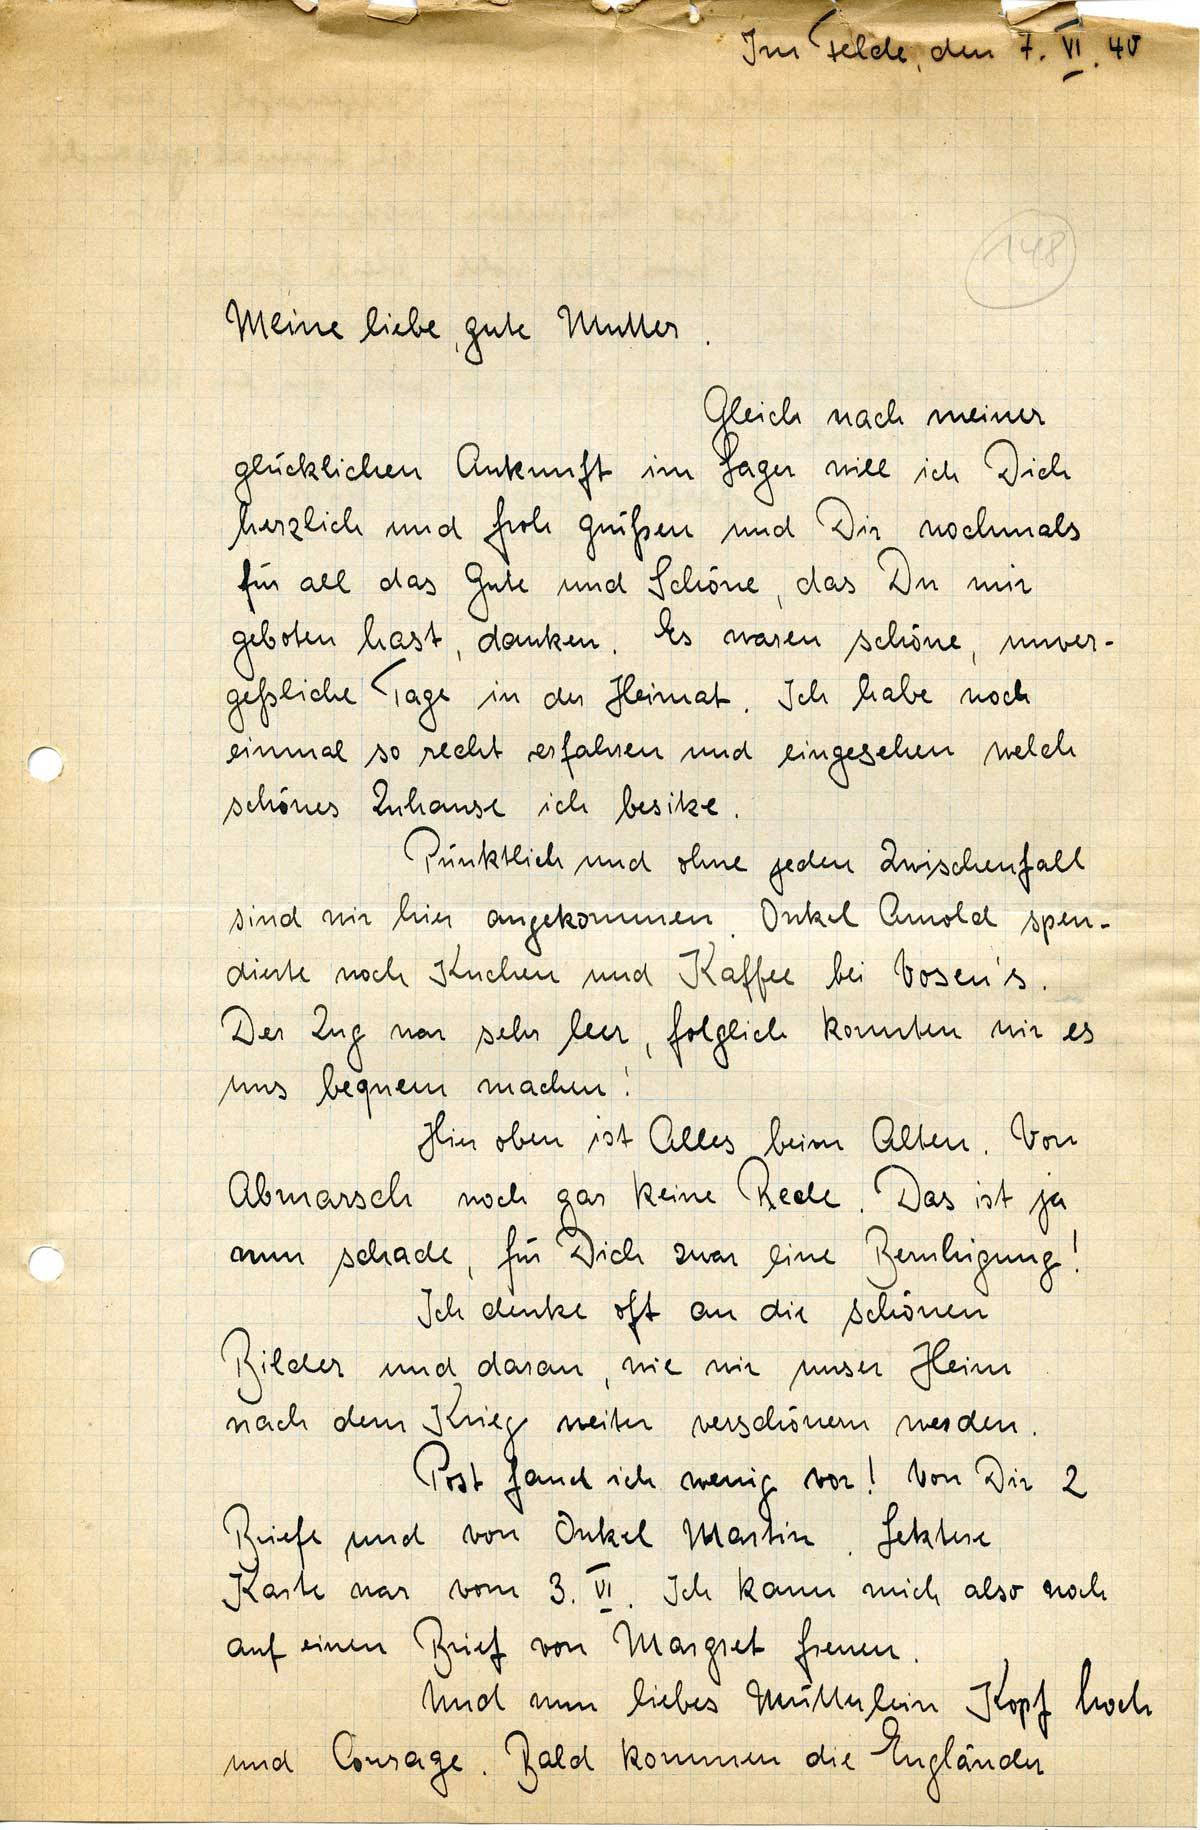 Im Felde, den 7. VI. 40
148
Meine liebe, gute Mutter.
Gleich nach meiner
glücklichen Ankunft im Lager will ich Dich
herzlich und froh grüßen und Dir nochmals
für all das Gute und Schöne, das Du mir
geboten hast, danken. Es waren schöne, unver-
geßliche Tage in der Heimat. Ich habe noch
einmal so recht erfahren und eingesehen welch
schönes Zuhause ich besitze.
Pünktlich und ohne jeden Zwischenfall
sind wir hier angekommen. Onkel Arnold spen-
dierte noch Kuchen und Kaffee bei Vosen's.
Der Zug war sehr leer, folglich konnten wir es
uns bequem machen!
Hier oben ist Alles beim Alten. Von
Abmarsch noch gar keine Rede. Das ist ja
nun schade, für Dich zwar eine Beruhigung!
Ich denke oft an die schönen
Bilder und daran, wie wir unser Heim
nach dem Krieg weiter verschönern werden.
Post fand ich wenig vor! Von Dir 2
Briefe und von Onkel Martin. Letztere
Karte war vom 3. VI. Ich kann mich also noch
auf einen Brief von Margret freuen.
Und nun liebes Mütterlein Kopf hoch
und Courage. Bald kommen die Engländer